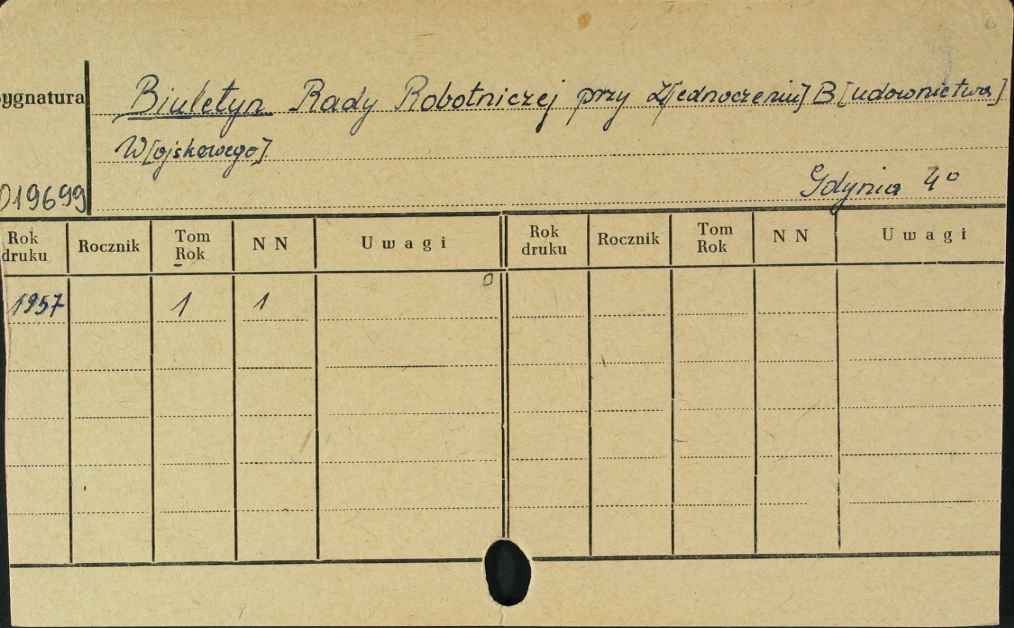 Sygnatura
Biuletyn Rady Robotniczej przy Z[jednoczeniu] B[udownictwa]
W[ojskowego].
Gdynia 4°
019699
Rok druku Rocznik Tom Rok N N Uwagi Rok druku Rocznik Tom Rok N N Uwagi
1957 1 1